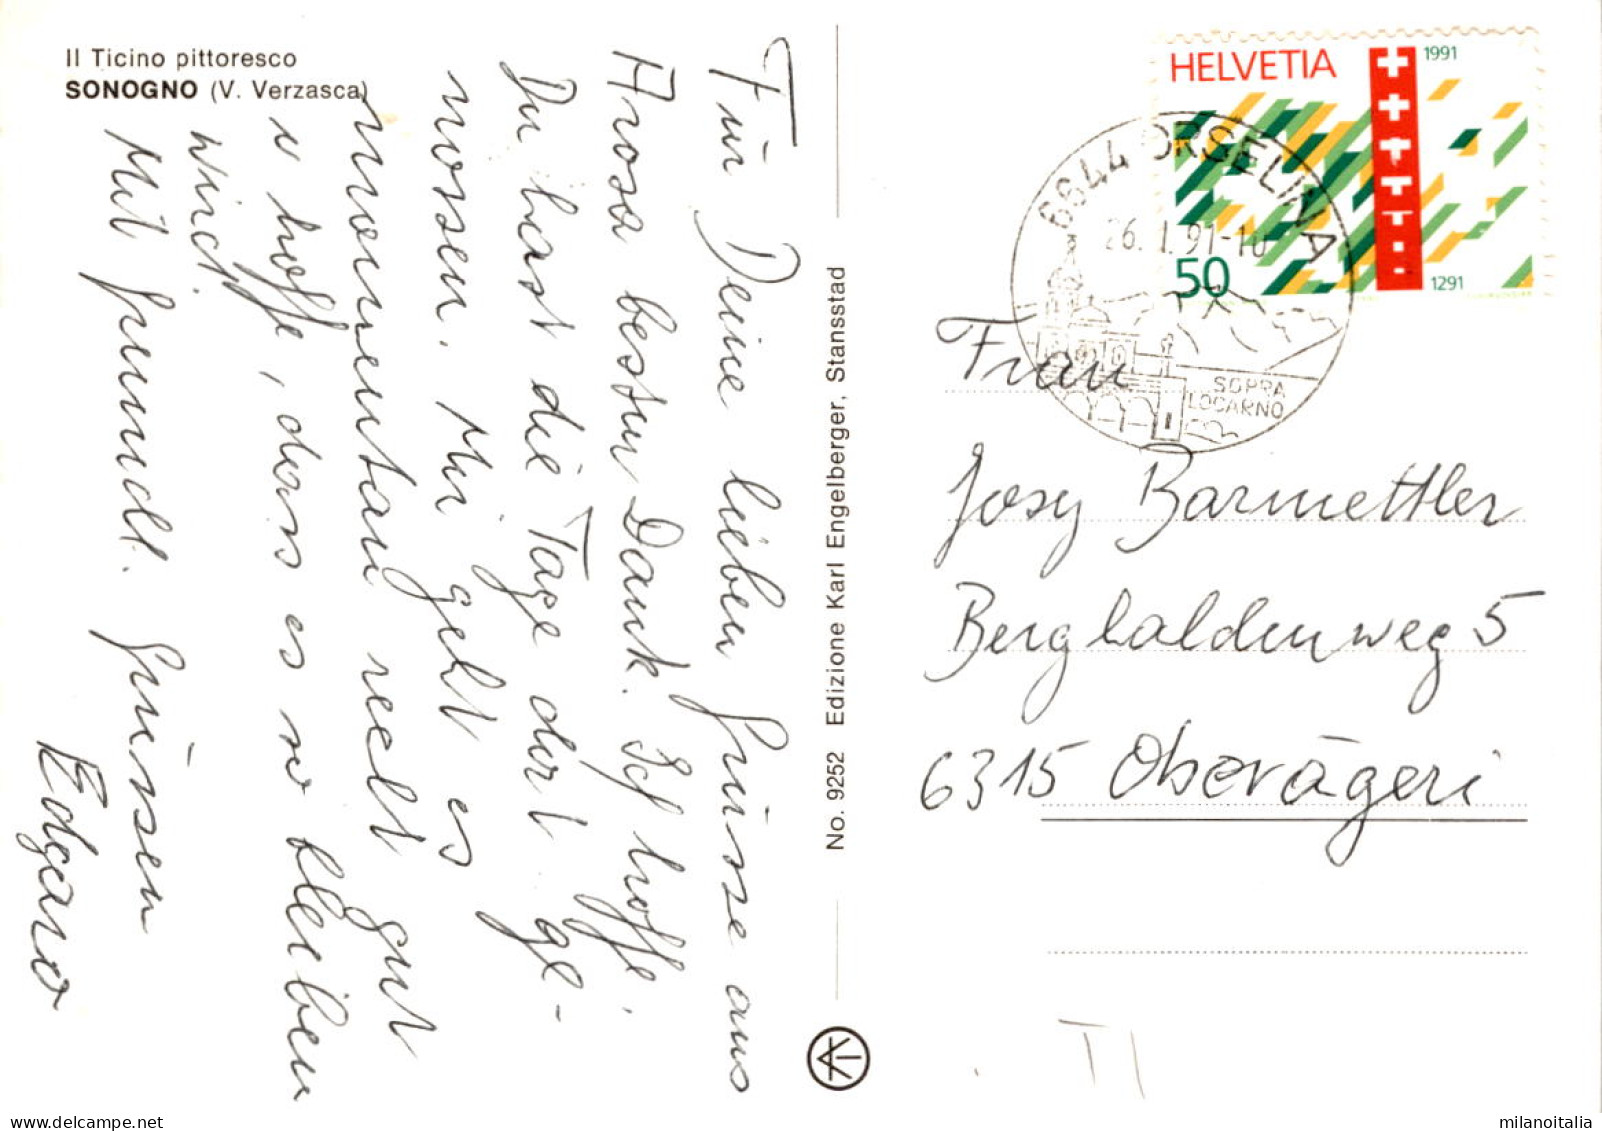 Il Ticino pittoresco
SONOGNO (V. Verzasca)
Für Deine lieben Grüsse aus
Arosa besten Dank. Ich hoffe,
Du hast die Tage dort ge-
nossen. Mir geht es
momentan recht gut
u hoffe, dass es so bleiben
wird.
Mit freundl. Grüssen
Edgaro
No. 9252 Edizione Karl Engelberger, Stansstad
HELVETIA
1991
50
1291
6644 ORSELINA
26. 1. 91-10
SOPRA
LOCARNO
Frau
Josy Barmettler
Berghaldenweg 5
6315 Oberägeri
TI
milanoitalia